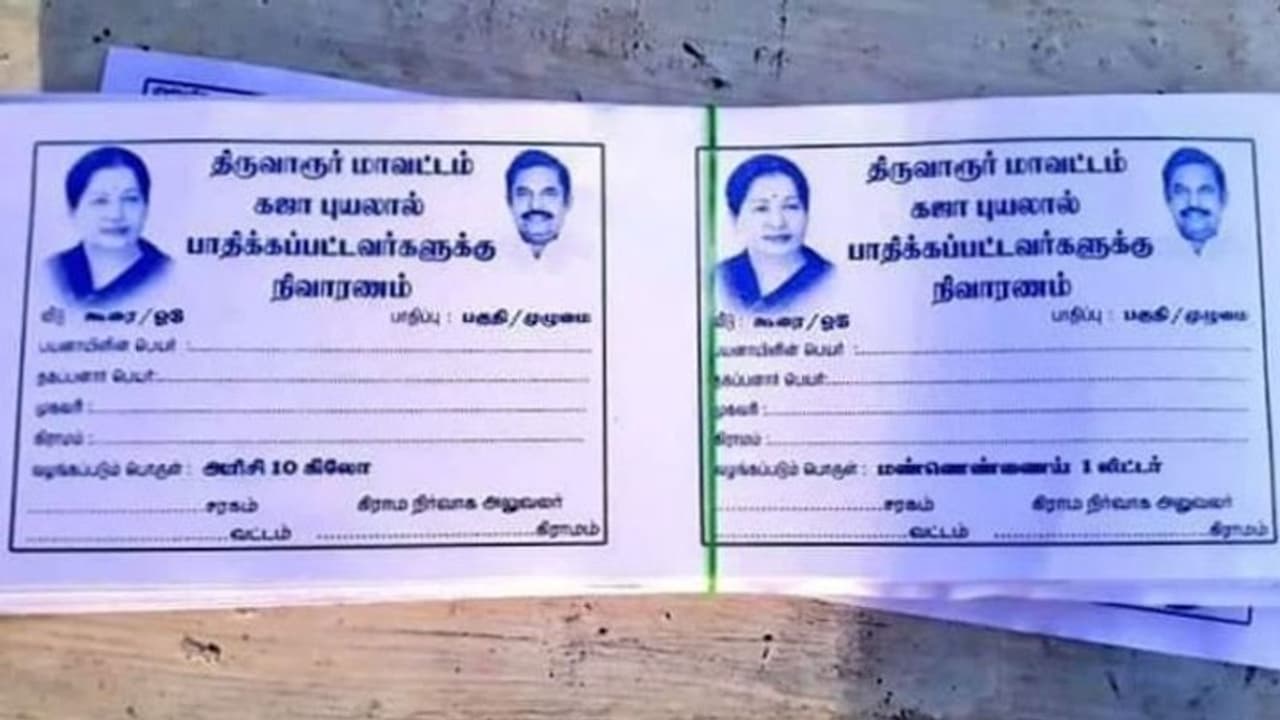 திருவாரூர் மாவட்டம்
கஜா புயலால்
பாதிக்கப்பட்டவர்களுக்கு
நிவாரணம்
வீடு : கூரை/ஓடு பாதிப்பு : பகுதி/முழுமை
பயனாயினின் பெயர் :
தகப்பனார் பெயர்:
முகவரி :
கிராமம் :
வழங்கப்படும் பொருள் : அரிசி 10 கிலோ
சரகம் கிராம நிர்வாக அலுவலர்
வட்டம் கிராமம்
திருவாரூர் மாவட்டம்
கஜா புயலால்
பாதிக்கப்பட்டவர்களுக்கு
நிவாரணம்
வீடு : கூரை/ஓடு பாதிப்பு : பகுதி/முழுமை
பயனாயினின் பெயர் :
தகப்பனார் பெயர்:
முகவரி :
கிராமம் :
வழங்கப்படும் பொருள் : மண்ணெண்ணைய் 1 லிட்டர்
சரகம் கிராம நிர்வாக அலுவலர்
வட்டம் கிராமம்